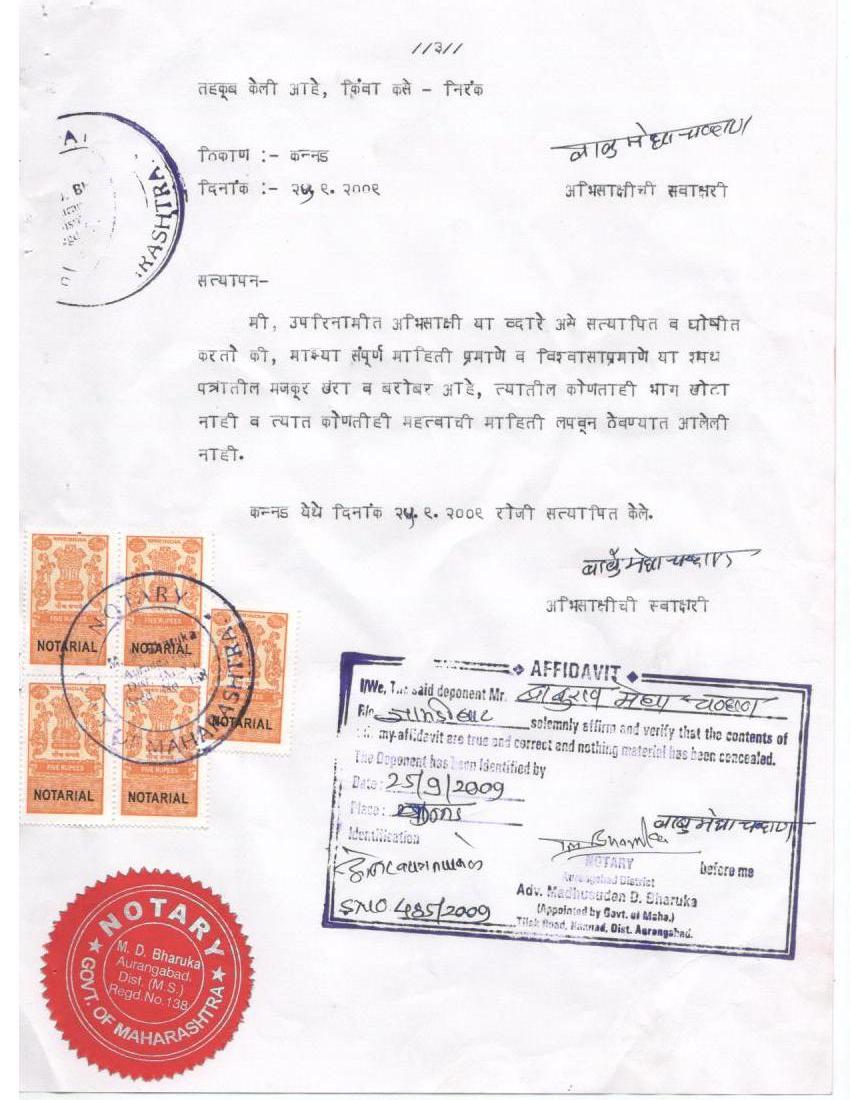 //३//
तहकूब केली आहे, किंवा कसे - निरंक
ठिकाण :- कन्नड
दिनांक :- २५.९.२००९
बाबु मेघा चव्हाण
अभिसाक्षीची स्वाक्षरी
RASHTRA.
सत्यापन-
मी, उपरिनामीत अभिसाक्षी या व्दारे असे सत्यापित व घोषीत
करतो की, माझ्या संपूर्ण माहिती प्रमाणे व विश्वासाप्रमाणे या शपथ
पत्रातील मजकूर खरा व बरोबर आहे, त्यातील कोणताही भाग खोटा
नाही व त्यात कोणतीही महत्वाची माहिती लपवून ठेवण्यात आलेली
नाही.
कन्नड येथे दिनांक २५.९.२००९ रोजी सत्यापित केले.
बाबु मेघा चव्हाण
अभिसाक्षीची स्वाक्षरी
FIVE RUPEES
NOTARIAL
FIVE RUPEES
NOTARIAL
NOTARIAL
FIVE RUPEES
NOTARIAL
FIVE RUPEES
NOTARIAL
NOTARY
MAHARASHTRA.
AFFIDAVIT
I/We, The said deponent Mr. बाबुराव मेघा चव्हाण
R/o. solemnly affirm and verify that the contents of
my affidavit are true and correct and nothing material has been concealed.
The Deponent has been Identified by
Date: 25/9/2009
Place:
बाबु मेघा चव्हाण
Identification
NOTARY before me
Aurangabad District
Adv. Madhusudan D. Bharuka
(Appointed by Govt. of Maha.)
Tilak Road, Kannad, Dist. Aurangabad.
S.NO. 485/2009
NOTARY
M. D. Bharuka
Aurangabad.
Dist. (M.S.)
Regd.No.138
GOVT. OF MAHARASHTRA